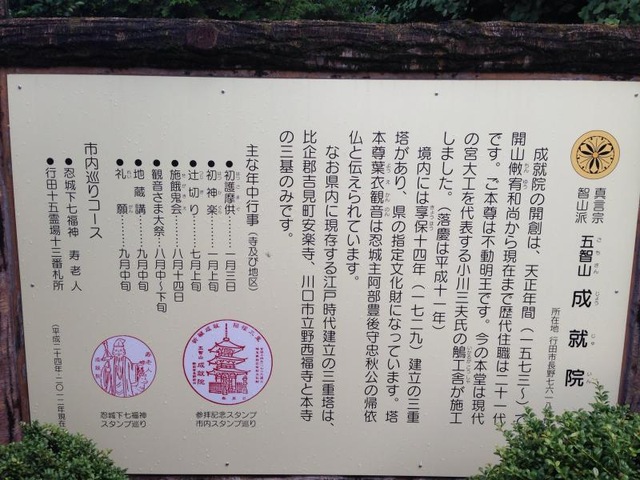 真言宗
智山派
五智山 成就院
ごちさん じょうじゅいん
所在地 行田市長野七六一八
成就院の開創は、天正年間(一五七三~)で
開山僘宥和尚から現在まで歴代住職は二十一代
です。ご本尊は不動明王です。今の本堂は現代
の宮大工を代表する小川三夫氏の鵤工舎が施工
しました。(落慶は平成十一年)
境内には享保十四年(一七二九)建立の三重
塔があり、県の指定文化財になっています。塔
本尊葉衣観音は忍城主阿部豊後守忠秋公の帰依
仏と伝えられています。
なお県内に現存する江戸時代建立の三重塔は、
比企郡吉見町安楽寺、川口市立野西福寺と本寺
の三基のみです。
主な年中行事(寺及び地区)
●初護摩供……一月三日
●初神楽……一月上旬
●辻切り……七月上旬
●施餓鬼会……八月十四日
●観音さま大祭…八月中~下旬
●地蔵講……九月中旬
●礼願……九月中旬
市内巡りコース
●忍城下七福神 寿老人
●行田十五霊場十三番札所
(平成二十四年・二〇一二年現在
成就院
参拝記念スタンプ
市内スタンプ巡り
寿老人
忍城下七福神
スタンプ巡り